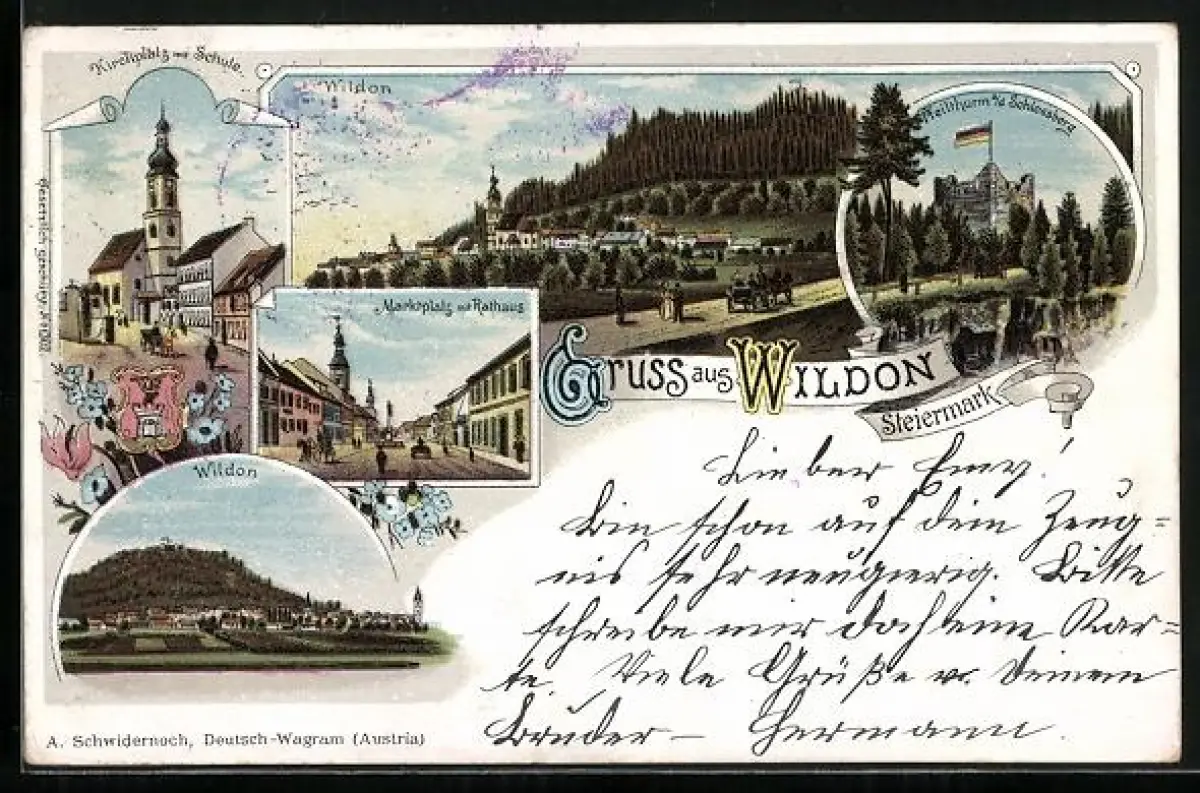 Kirchplatz mit Schule.
Wildon
Weilthurm a/d Schlossberg
Marktplatz mit Rathaus
Gruss aus WILDON
Steiermark
Wildon
Lieber Emy!
Bin schon auf dein Zeug=
nis sehr neugierig. Bitte
schreibe mir doch eine Kar=
te. Viele Grüße v. Deinem
Bruder – Hermann.
A. Schwidernoch, Deutsch-Wagram (Austria)
Gesetzlich geschützt